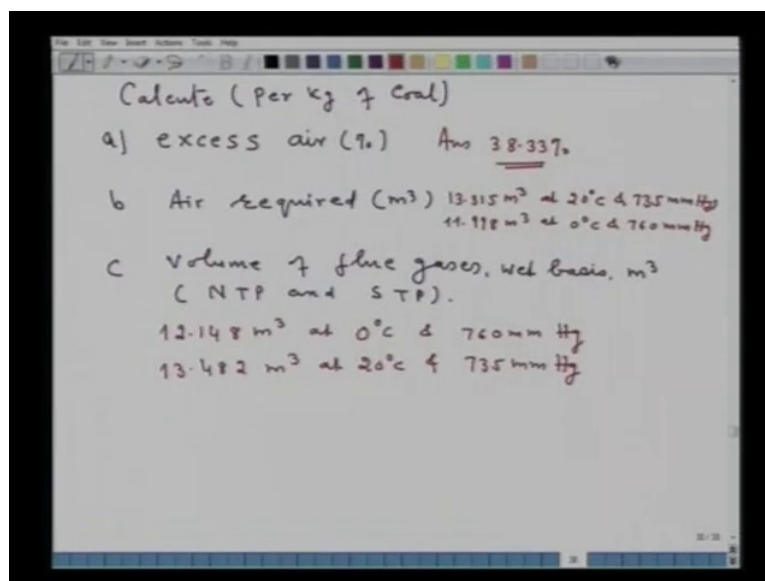 File Edit View Insert Actions Tools Help
Calcute (Per Kg of Coal)
a) excess air (%) Ans 38.33%
b Air required (m³) 13.315 m³ at 20°C & 735 mm Hg
11.998 m³ at 0°C & 760 mm Hg
c Volume of flue gases, wet basis, m³
( NTP and STP).
12.148 m³ at 0°C & 760 mm Hg
13.482 m³ at 20°C & 735 mm Hg